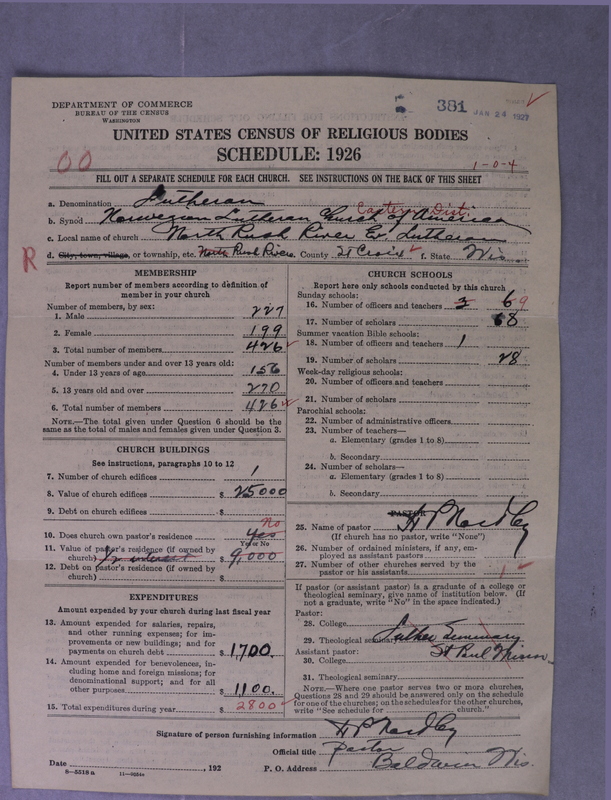 DEPARTMENT OF COMMERCE
BUREAU OF THE CENSUS
WASHINGTON
381
JAN 24 1927
UNITED STATES CENSUS OF RELIGIOUS BODIES
SCHEDULE: 1926
00
1-0-4
FILL OUT A SEPARATE SCHEDULE FOR EACH CHURCH. SEE INSTRUCTIONS ON THE BACK OF THIS SHEET
a. Denomination Lutheran
Eastern Dist.
b. Synod Norwegian Lutheran Church of America
c. Local name of church North Rush River Ev. Lutheran
R
d. City, town, village, or township, etc. North Rush River County St Croix f. State Wis.
MEMBERSHIP
Report number of members according to definition of
member in your church
Number of members, by sex:
1. Male 227
2. Female 199
3. Total number of members 426
Number of members under and over 13 years old:
4. Under 13 years of age 156
5. 13 years old and over 270
6. Total number of members 426
NOTE.—The total given under Question 6 should be
the same as the total of males and females given under Question 3.
CHURCH BUILDINGS
See instructions, paragraphs 10 to 12
7. Number of church edifices 1
8. Value of church edifices $ 25000
9. Debt on church edifices $
No
10. Does church own pastor's residence yes
Yes or No
11. Value of pastor's residence (if owned by
church) $ 9,000
12. Debt on pastor's residence (if owned by
church) $
EXPENDITURES
Amount expended by your church during last fiscal year
13. Amount expended for salaries, repairs,
and other running expenses; for im-
provements or new buildings; and for
payments on church debt $ 1700.
14. Amount expended for benevolences, in-
cluding home and foreign missions; for
denominational support; and for all
other purposes $ 1100.
15. Total expenditures during year $ 2800
CHURCH SCHOOLS
Report here only schools conducted by this church
Sunday schools:
16. Number of officers and teachers 3 6 9
17. Number of scholars 68
Summer vacation Bible schools:
18. Number of officers and teachers 1
19. Number of scholars 28
Week-day religious schools:
20. Number of officers and teachers
21. Number of scholars
Parochial schools:
22. Number of administrative officers
23. Number of teachers—
a. Elementary (grades 1 to 8)
b. Secondary
24. Number of scholars—
a. Elementary (grades 1 to 8)
b. Secondary
PASTOR
25. Name of pastor H P Nordby
(If church has no pastor, write "None")
26. Number of ordained ministers, if any, em-
ployed as assistant pastors
27. Number of other churches served by the
pastor or his assistants 1
If pastor (or assistant pastor) is a graduate of a college or
theological seminary, give name of institution below. (If
not a graduate, write "No" in the space indicated.)
Pastor:
28. College
29. Theological seminary Luther Seminary
Assistant pastor: St Paul Minn
30. College
31. Theological seminary
NOTE.—Where one pastor serves two or more churches,
Questions 28 and 29 should be answered only on the schedule
for one of the churches; on the schedules for the other churches,
write "See schedule for church."
Signature of person furnishing information H P Nordby
Official title Pastor
Date , 192 P. O. Address Baldwin Wis.
8—5518 a